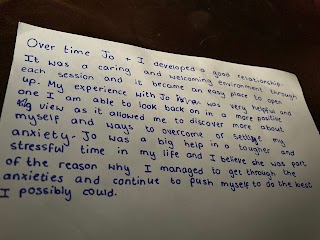 Over time Jo + I developed a good relationship.
It was a caring and welcoming environment through
each session and it became an easy place to open
up. My experience with Jo was very helpful and
one I am able to look back on in a more positive
view as it allowed me to discover more about
myself and ways to overcome of my
anxiety. Jo was a big help in a tougher and
stressful time in my life and I believe she was part
of the reason why I managed to get through the
anxieties and continue to push myself to do the best
I possibly could.